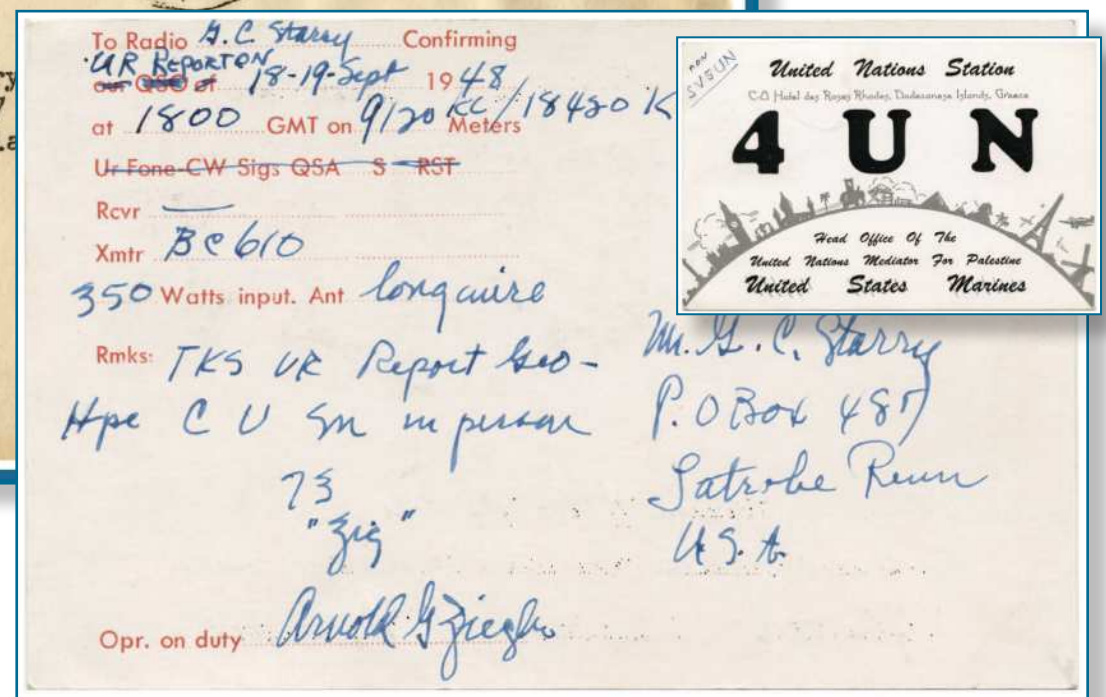 To Radio G. C. Starry Confirming
UR REPORT ON
our QSO of 18-19-Sept 1948
at 1800 GMT on 9120 KC/18420 K
Meters
Ur Fone-CW Sigs QSA S RST
Rcvr
Xmtr BC610
350 Watts input. Ant longwire
Rmks: TKS UR Report Geo-
Hpe C U Sn in person
73
"Zig"
Opr. on duty Arnold G Ziegler
Mr. G. C. Starry
P.O Box 487
Latrobe Penn
U.S.A.
now
SV5UN
United Nations Station
C.O Hotel des Roses Rhodes, Dodecanese Islands, Greece
4 U N
Head Office Of The
United Nations Mediator For Palestine
United States Marines